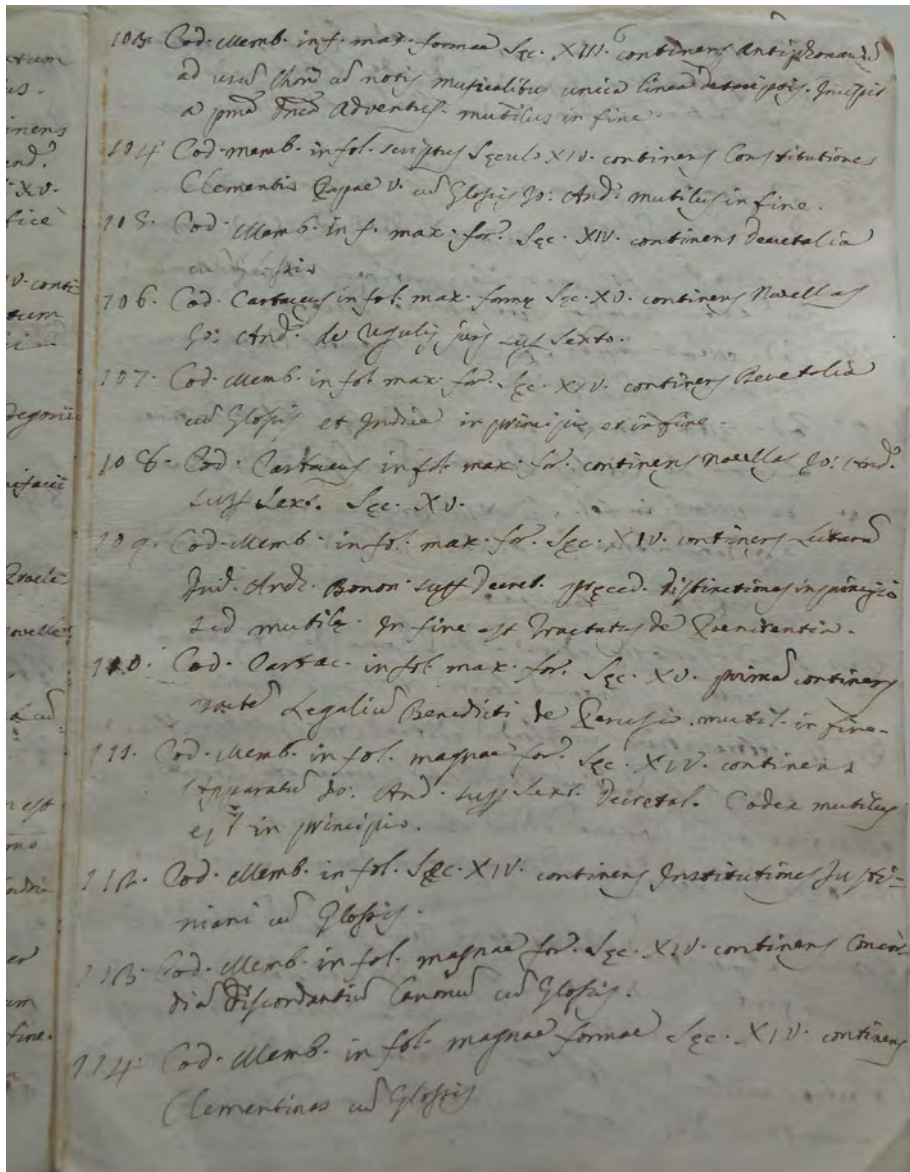 103. Cod. Memb. in f. max. formae Sęc. XIII. continens Antiphonariũ
ad usũ Chori cũ notis musicalibus unica linea descriptis. Incipit
a pma Dnca Adventus. mutilus in fine.
104. Cod. memb. in fol. scriptus Sęculo XIV. continens Constitutiones
Clementis Papae V. cũ Glossis Jo: And. mutilus in fine.
105. Cod. Memb. in f. max. for. Sęc. XIV. continens Decretalia
cũ Glossis
106. Cod. Cartaceus in fol. max. formę Sęc. XV. continens Novellas
Jo: And. de Regulis juris Sexto.
107. Cod. Memb. in fol max. for. Sęc. XIV. continens Decretalia
cũ Glossis et Indice in principio, et in fine.
108. Cod. Cartaceus in fol. max. for. continens Novellas Jo: And.
supp Sext. Sęc. XV.
109. Cod. Memb. in fol. max. for. Sęc. XIV. continens
And. Bonon. supp Decret. pręced. distinctiones in principio
sed mutilę. In fine est Tractatus de Poenitentia.
110. Cod. Cartac. in fol. max. for. Sęc. XV. continens
Legaliũ Benedicti de Perusio. mutil. in fine.
111. Cod. Memb. in fol. magnae for. Sęc. XIV. continens
Apparatũ Jo. And. supp Sext. Decretal. Codex mutilus
est in principio.
112. Cod. Memb. in fol. Sęc. XIV. continens Institutiones Justi-
niani cũ Glossis.
113. Cod. Memb. in fol. magnae for. Sęc. XIV. continens Concor-
diã Discordantiũ Canonũ cũ Glossis.
114. Cod. Memb. in fol. magnae formae Sęc. XIV. continens
Clementinas cũ Glossis